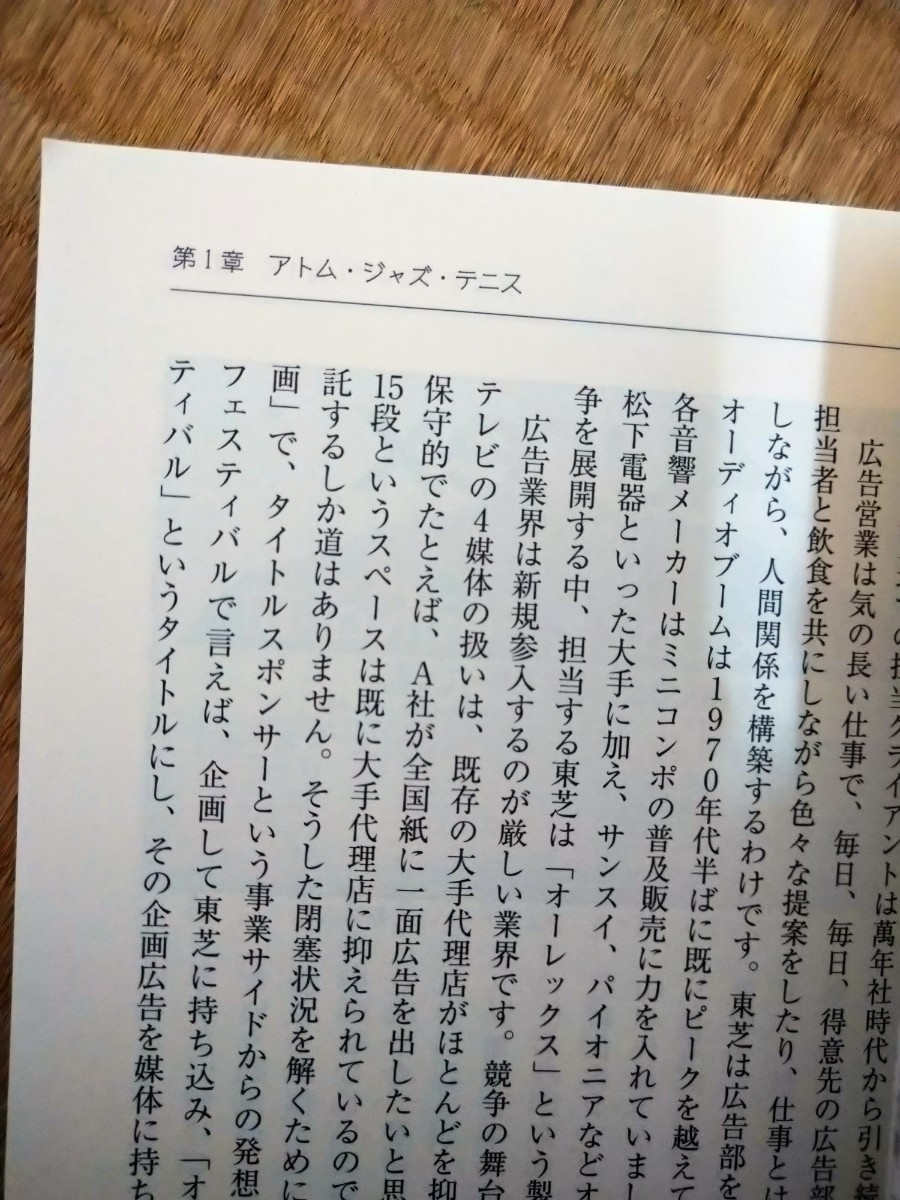 第1章 アトム・ジャズ・テニス
の担当クライアントは萬年社時代から引き続
広告営業は気の長い仕事で、毎日、毎日、得意先の広告部
担当者と飲食を共にしながら色々な提案をしたり、仕事とは
しながら、人間関係を構築するわけです。東芝は広告部を
オーディオブームは1970年代半ばに既にピークを越えて
各音響メーカーはミニコンポの普及販売に力を入れていまし
松下電器といった大手に加え、サンスイ、パイオニアなどオ
争を展開する中、担当する東芝は「オーレックス」という製
広告業界は新規参入するのが厳しい業界です。競争の舞台
テレビの4媒体の扱いは、既存の大手代理店がほとんどを抑
保守的でたとえば、A社が全国紙に一面広告を出したいと思
15段というスペースは既に大手代理店に抑えられているので
託するしか道はありません。そうした閉塞状況を解くために
画」で、タイトルスポンサーという事業サイドからの発想
フェスティバルで言えば、企画して東芝に持ち込み、「オ
ティバル」というタイトルにし、その企画広告を媒体に持ち